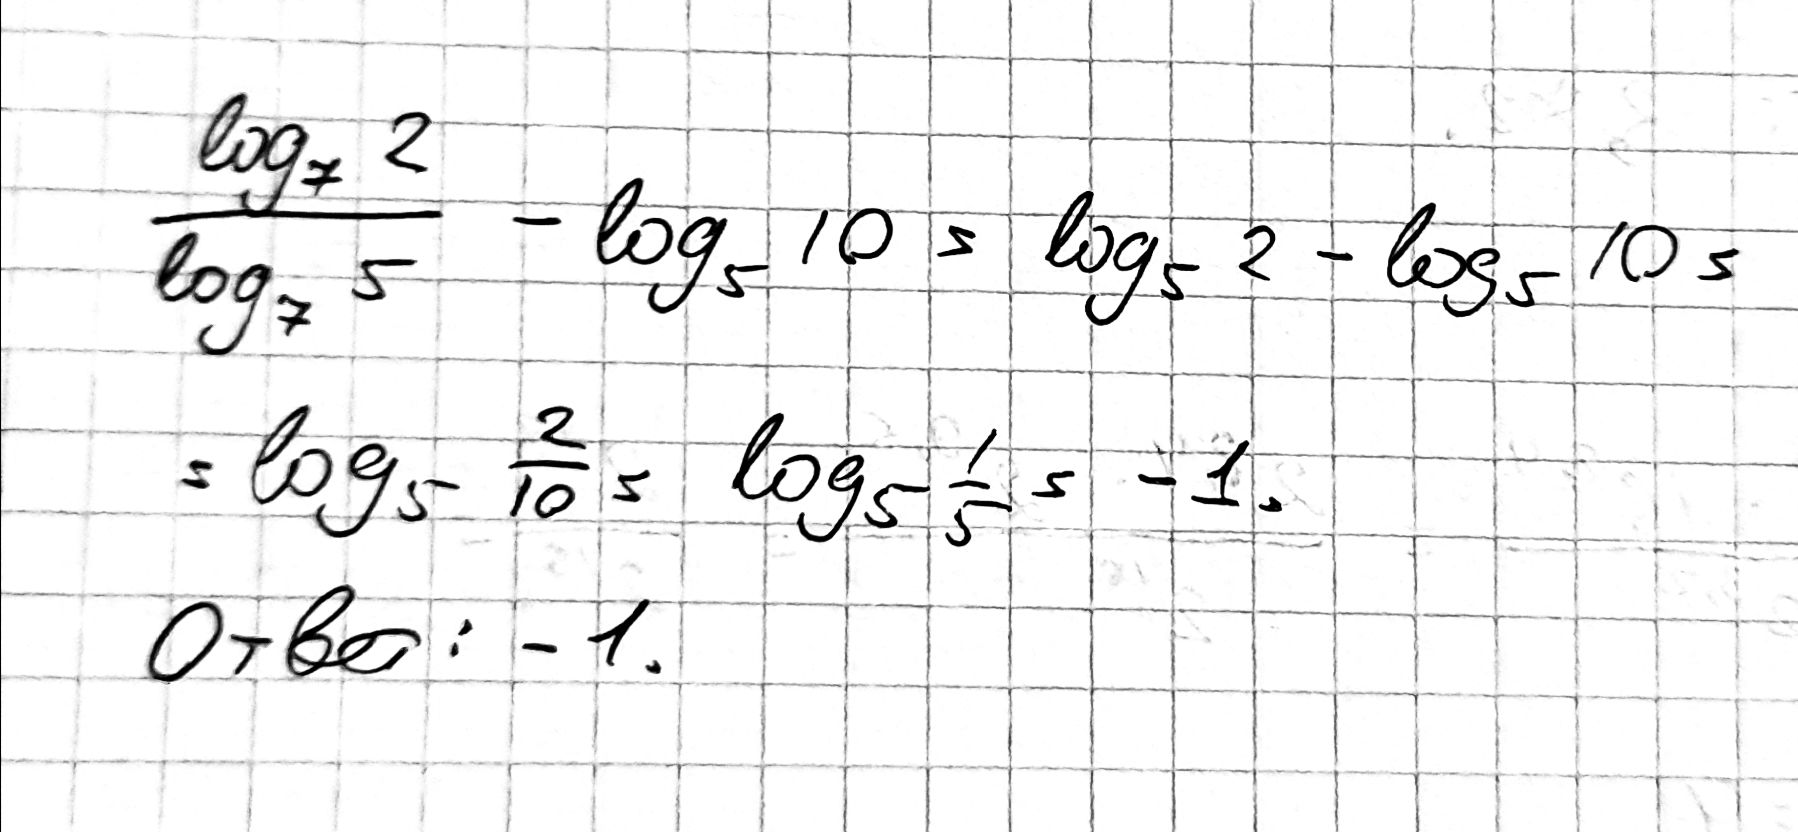 log₇ 2 / log₇ 5 - log₅ 10 = log₅ 2 - log₅ 10 =
= log₅ 2/10 = log₅ 1/5 = -1.
Ответ: -1.